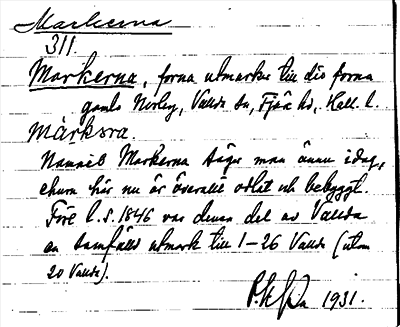 Markerna
311.
Markerna, forna utmarker till dio forna
gamla Norby, Vallda sn, Fjäre hd, Hall. l.
màrkṣra.
Namnet Markerna säger man ännu idag,
ehuru här nu är överallt odlat och bebyggt.
Före l. s. 1846 var denna del av Vallda
en samfälld utmark till 1-26 Vallda (utom
20 Vallda).
1931.